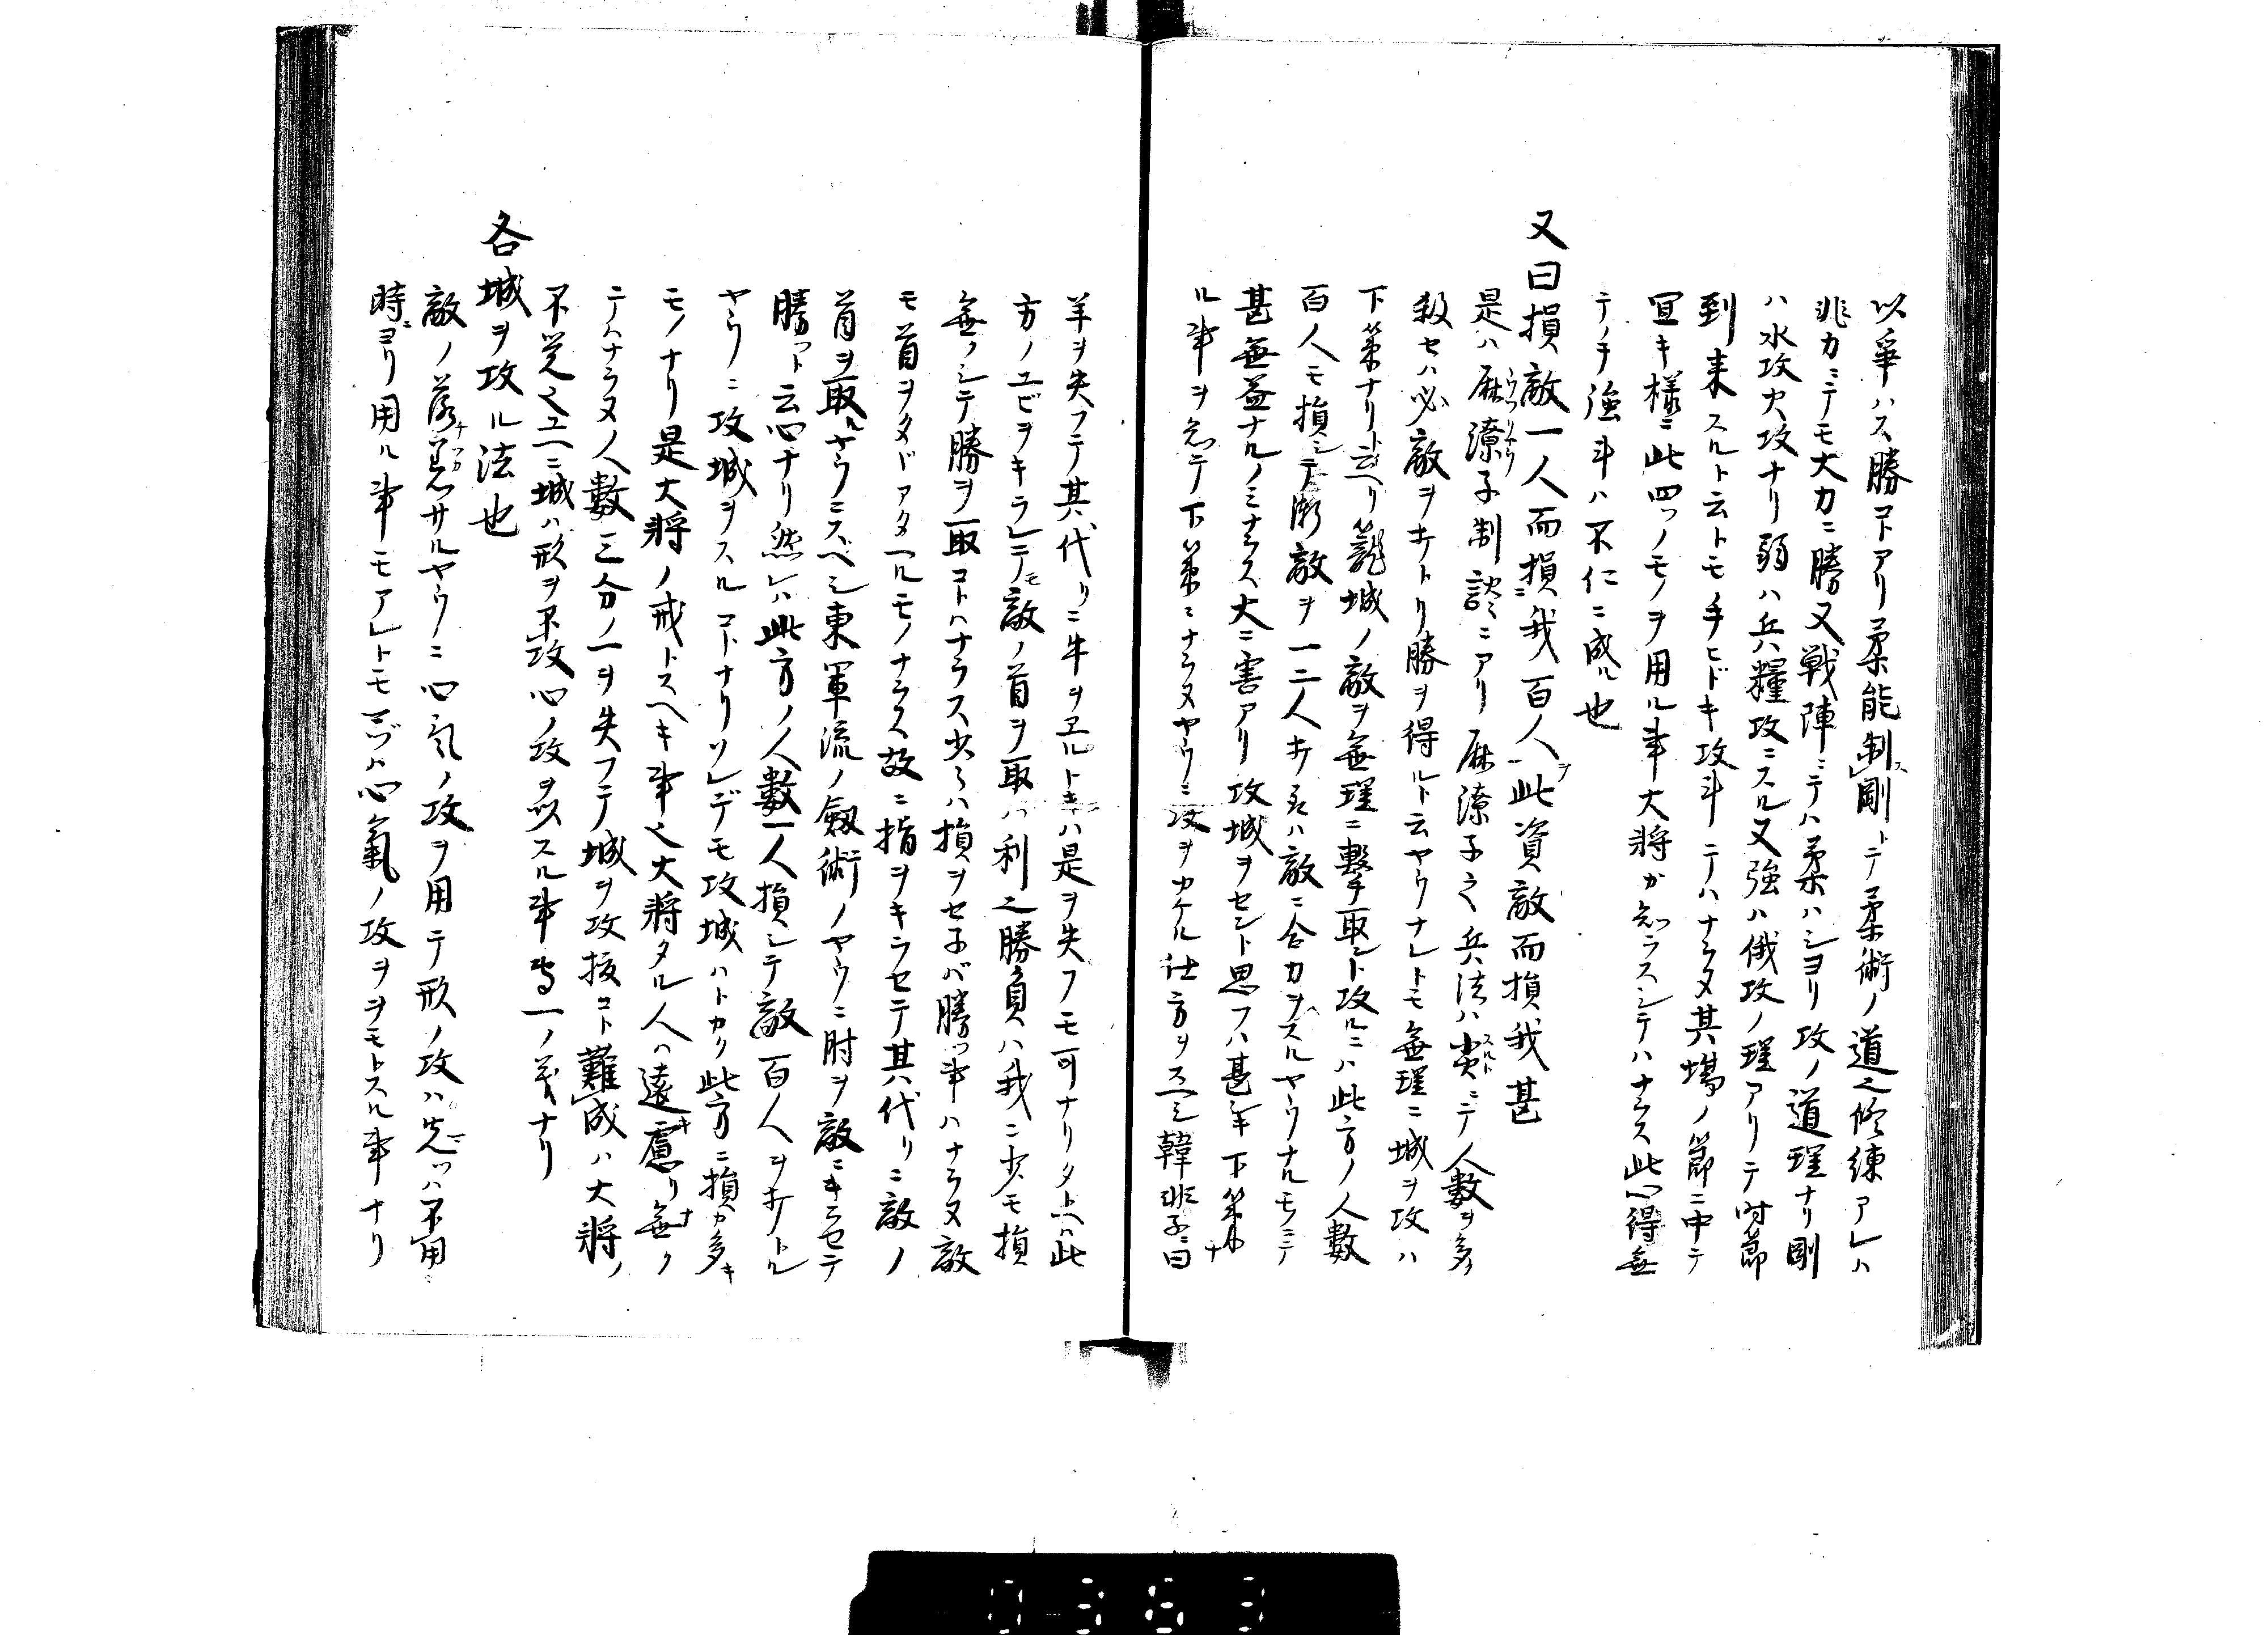 以爭ハス勝コトアリ柔能制ス剛トテ柔術ノ道之修練アレハ
非力ニテモ大力ニ勝又戦陣ニテハ柔ハシヨリ攻ノ道理ナリ剛
ハ水攻火攻ナリ弱ハ兵糧攻ニスル又強ハ俄攻ノ理アリテ時節
到来スルト云トモ手ヒドキ攻斗テハナラヌ其場ノ節ニ中テ
宜キ様ニ此四ツノモノヲ用ル事大将カ知ラスシテハナラス此心得無
テノ手強斗ハ不仁ニ成ル也
又曰損敵一人而損ニ我百人ヲ此資敵而損我甚
是ハ尉繚子制談ニアリ尉繚子之兵法ハスルトニテ人数ヲ多ク
殺セハ必敵ヲ打トリ勝ヲ得ルト云ヤウナレトモ無理ニ城ヲ攻ハ
下策ナリト云リ籠城ノ敵ヲ無理ニ撃取ント攻ルニハ此方ノ人数
百人モ損シテ漸敵ヲ一二人打ハ敵ニ合力ヲスルヤウナルモノニテ
甚無益ナルノミナラス大ニ害アリ攻城ヲセント思フハ甚下策ナ
ル事ヲ知テ下策ニナラヌヤウニ攻ヲカケル仕方ヲスヘシ韓非子ニ曰
羊ヲ失フテ其代リニ牛ヲヱルトキハ是ヲ失フモ可ナリタトハ此
方ノユビヲキラレテモ敵ノ首ヲ取ハ利之勝負ハ我ニ少モ損
無フシテ勝ヲ取コトハナラス少々ハ損ヲセネバ勝ツ事ハナラヌ敵
モ首ヲタドアタヘルモノナラス故ニ指ヲキラセテ其代リニ敵ノ
首ヲ取ルヤウニスベシ東軍流ノ劔術ノヤウニ肘ヲ敵ニキラセテ
勝ツト云心ナリ然レハ此方ノ人数一人損シテ敵百人ヲ打トル
ヤウニ攻城ヲスルコトナリソレデモ攻城ハトカク此方ニ損カ多キ
モノナリ是大将ノ戒トスヘキ事之大将タル人ハ遠キ慮リ無ナク
テハナラヌ人数三分ノ一ヲ失フテ城ヲ攻抜コト難成ハ大将ノ
不覚之ユヘニ城ハ形ヲ不攻心ノ攻ヲ以スル事専一ノ義ナリ
各城ヲ攻ル法也
敵ノ落着サルヤウニ心気ノ攻ヲ用テ形ノ攻ハ先ツハ不用
時ニヨリ用ル事モアレトモマヅハ心氣ノ攻ヲヲモトスル事ナリ